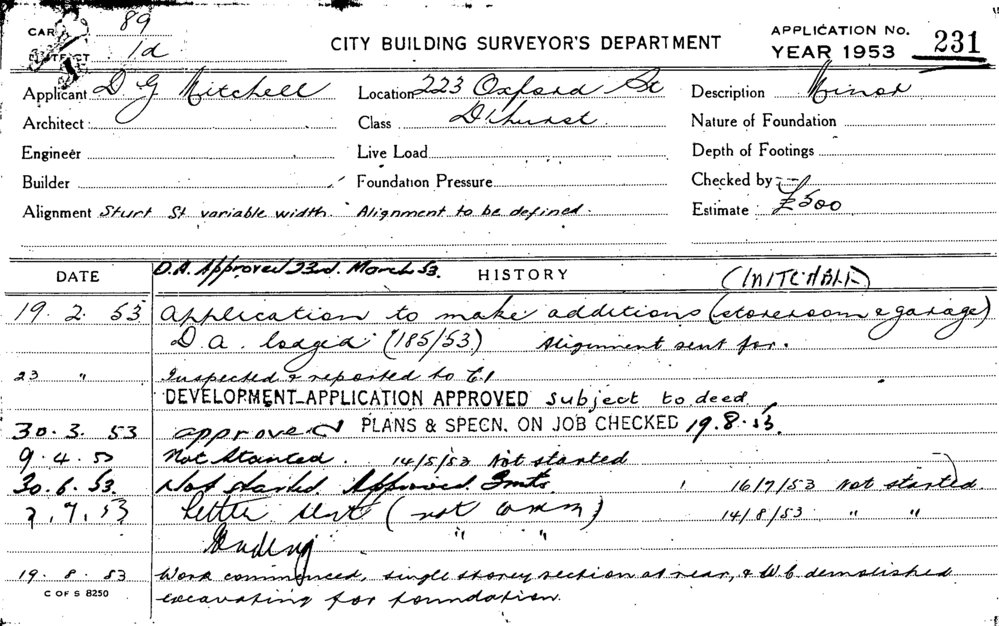 CAR 89
DISTRICT 1d
CITY BUILDING SURVEYOR'S DEPARTMENT
APPLICATION No. 231
YEAR 1953
Applicant D G Mitchell Location 223 Oxford St Description Minor
Architect Class D'hurst Nature of Foundation
Engineer Live Load Depth of Footings
Builder Foundation Pressure Checked by --
Alignment Sturt St variable width. Alignment to be defined. Estimate £500
DATE D.A. Approved 23rd. March 53. HISTORY (MITCHELL)
19. 2. 53 Application to make additions (storeroom & garage)
D. A. lodged (185/53) Alignment sent for.
23 " Inspected & reported to C1
DEVELOPMENT APPLICATION APPROVED subject to deed
30. 3. 53 approved PLANS & SPECN. ON JOB CHECKED 19.8.53.
9. 4. 53 Not Started. 14/5/53 Not started
30. 6. 53. Not started. Approved 16/7/53 Not started
7. 53 Letter sent (not comm) 14/8/53 " "
" "
19. 8. 53 Work commenced, single storey section at rear, & W.C. demolished
excavating for foundation.
C OF S 8250